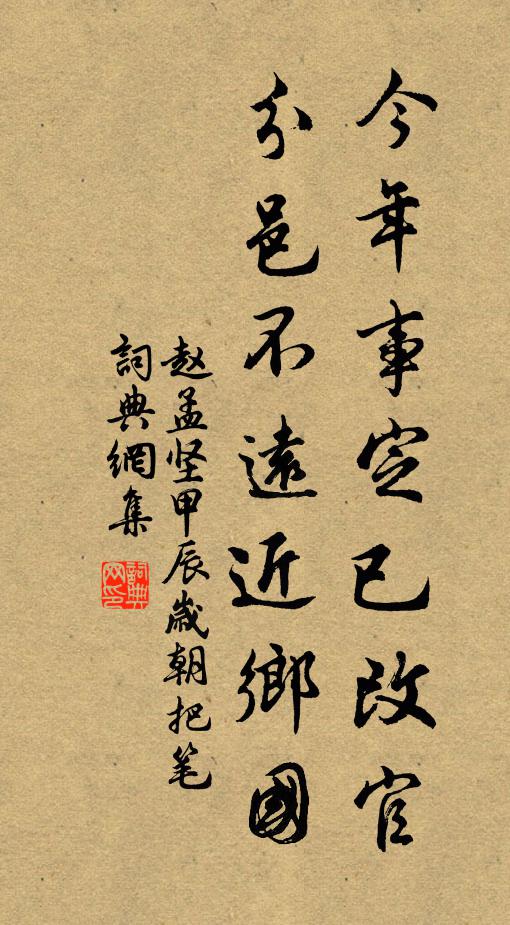 今年事定已改官
分邑不遠近鄉國
赵孟坚甲辰歲朝把笔
詞典網集
詞典网印